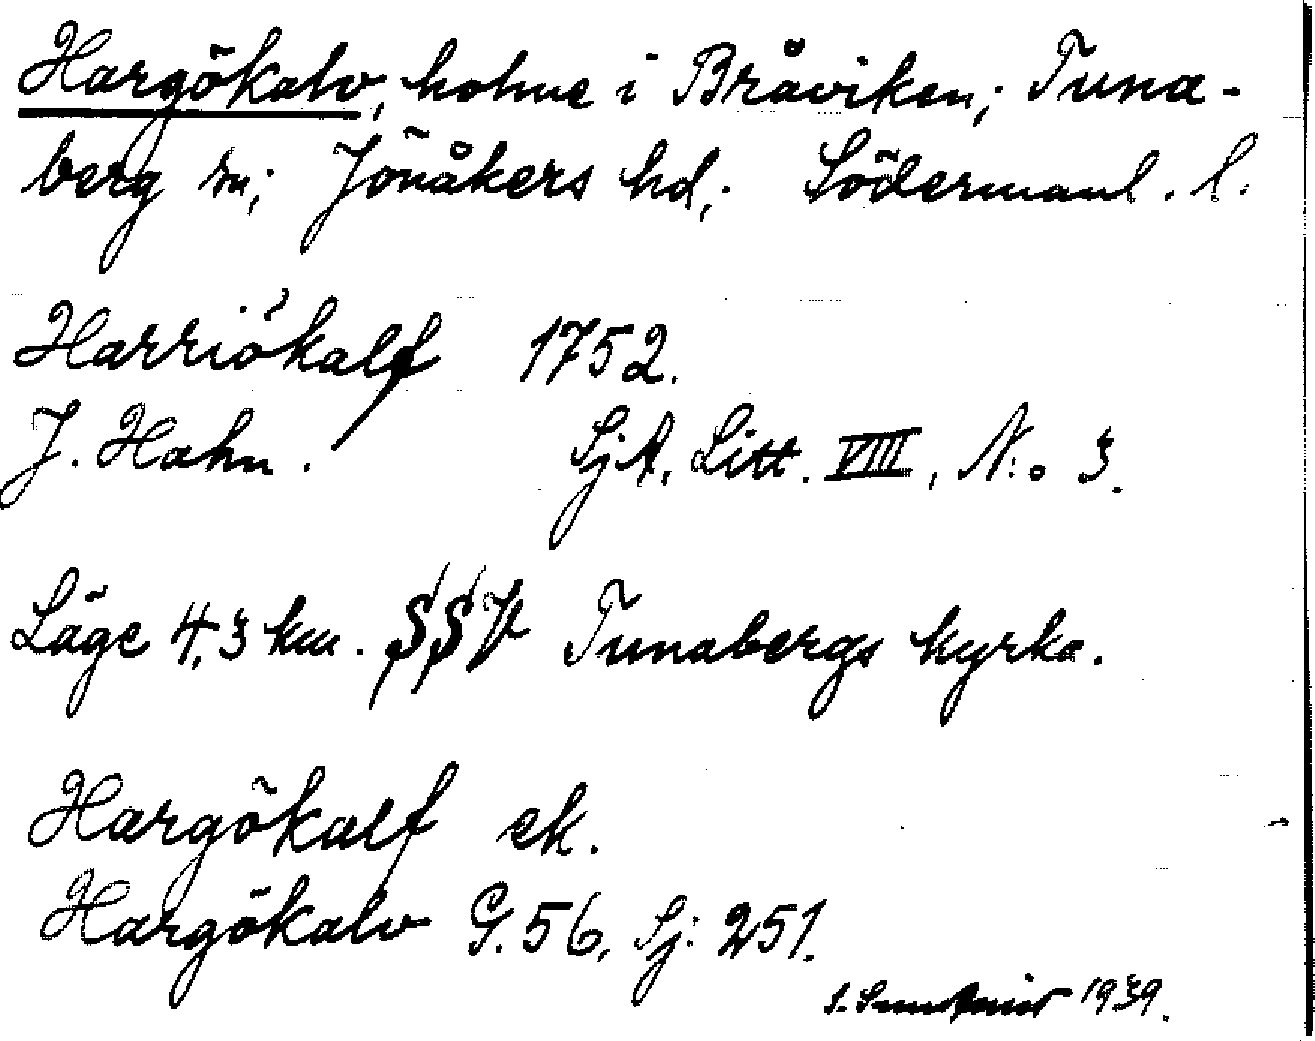 Hargökalv, holme i Bråviken; Tuna-
berg sn; Jönåkers hd; Södermanl. l.
Harriökalf 1752.
J. Hahn. SjA, Litt. VIII, N:o 3.
Läge 4,3 km. SSV Tunabergs kyrka.
Hargökalf ek.
Hargökalv G. 56, Sj: 251.
S. 1939.